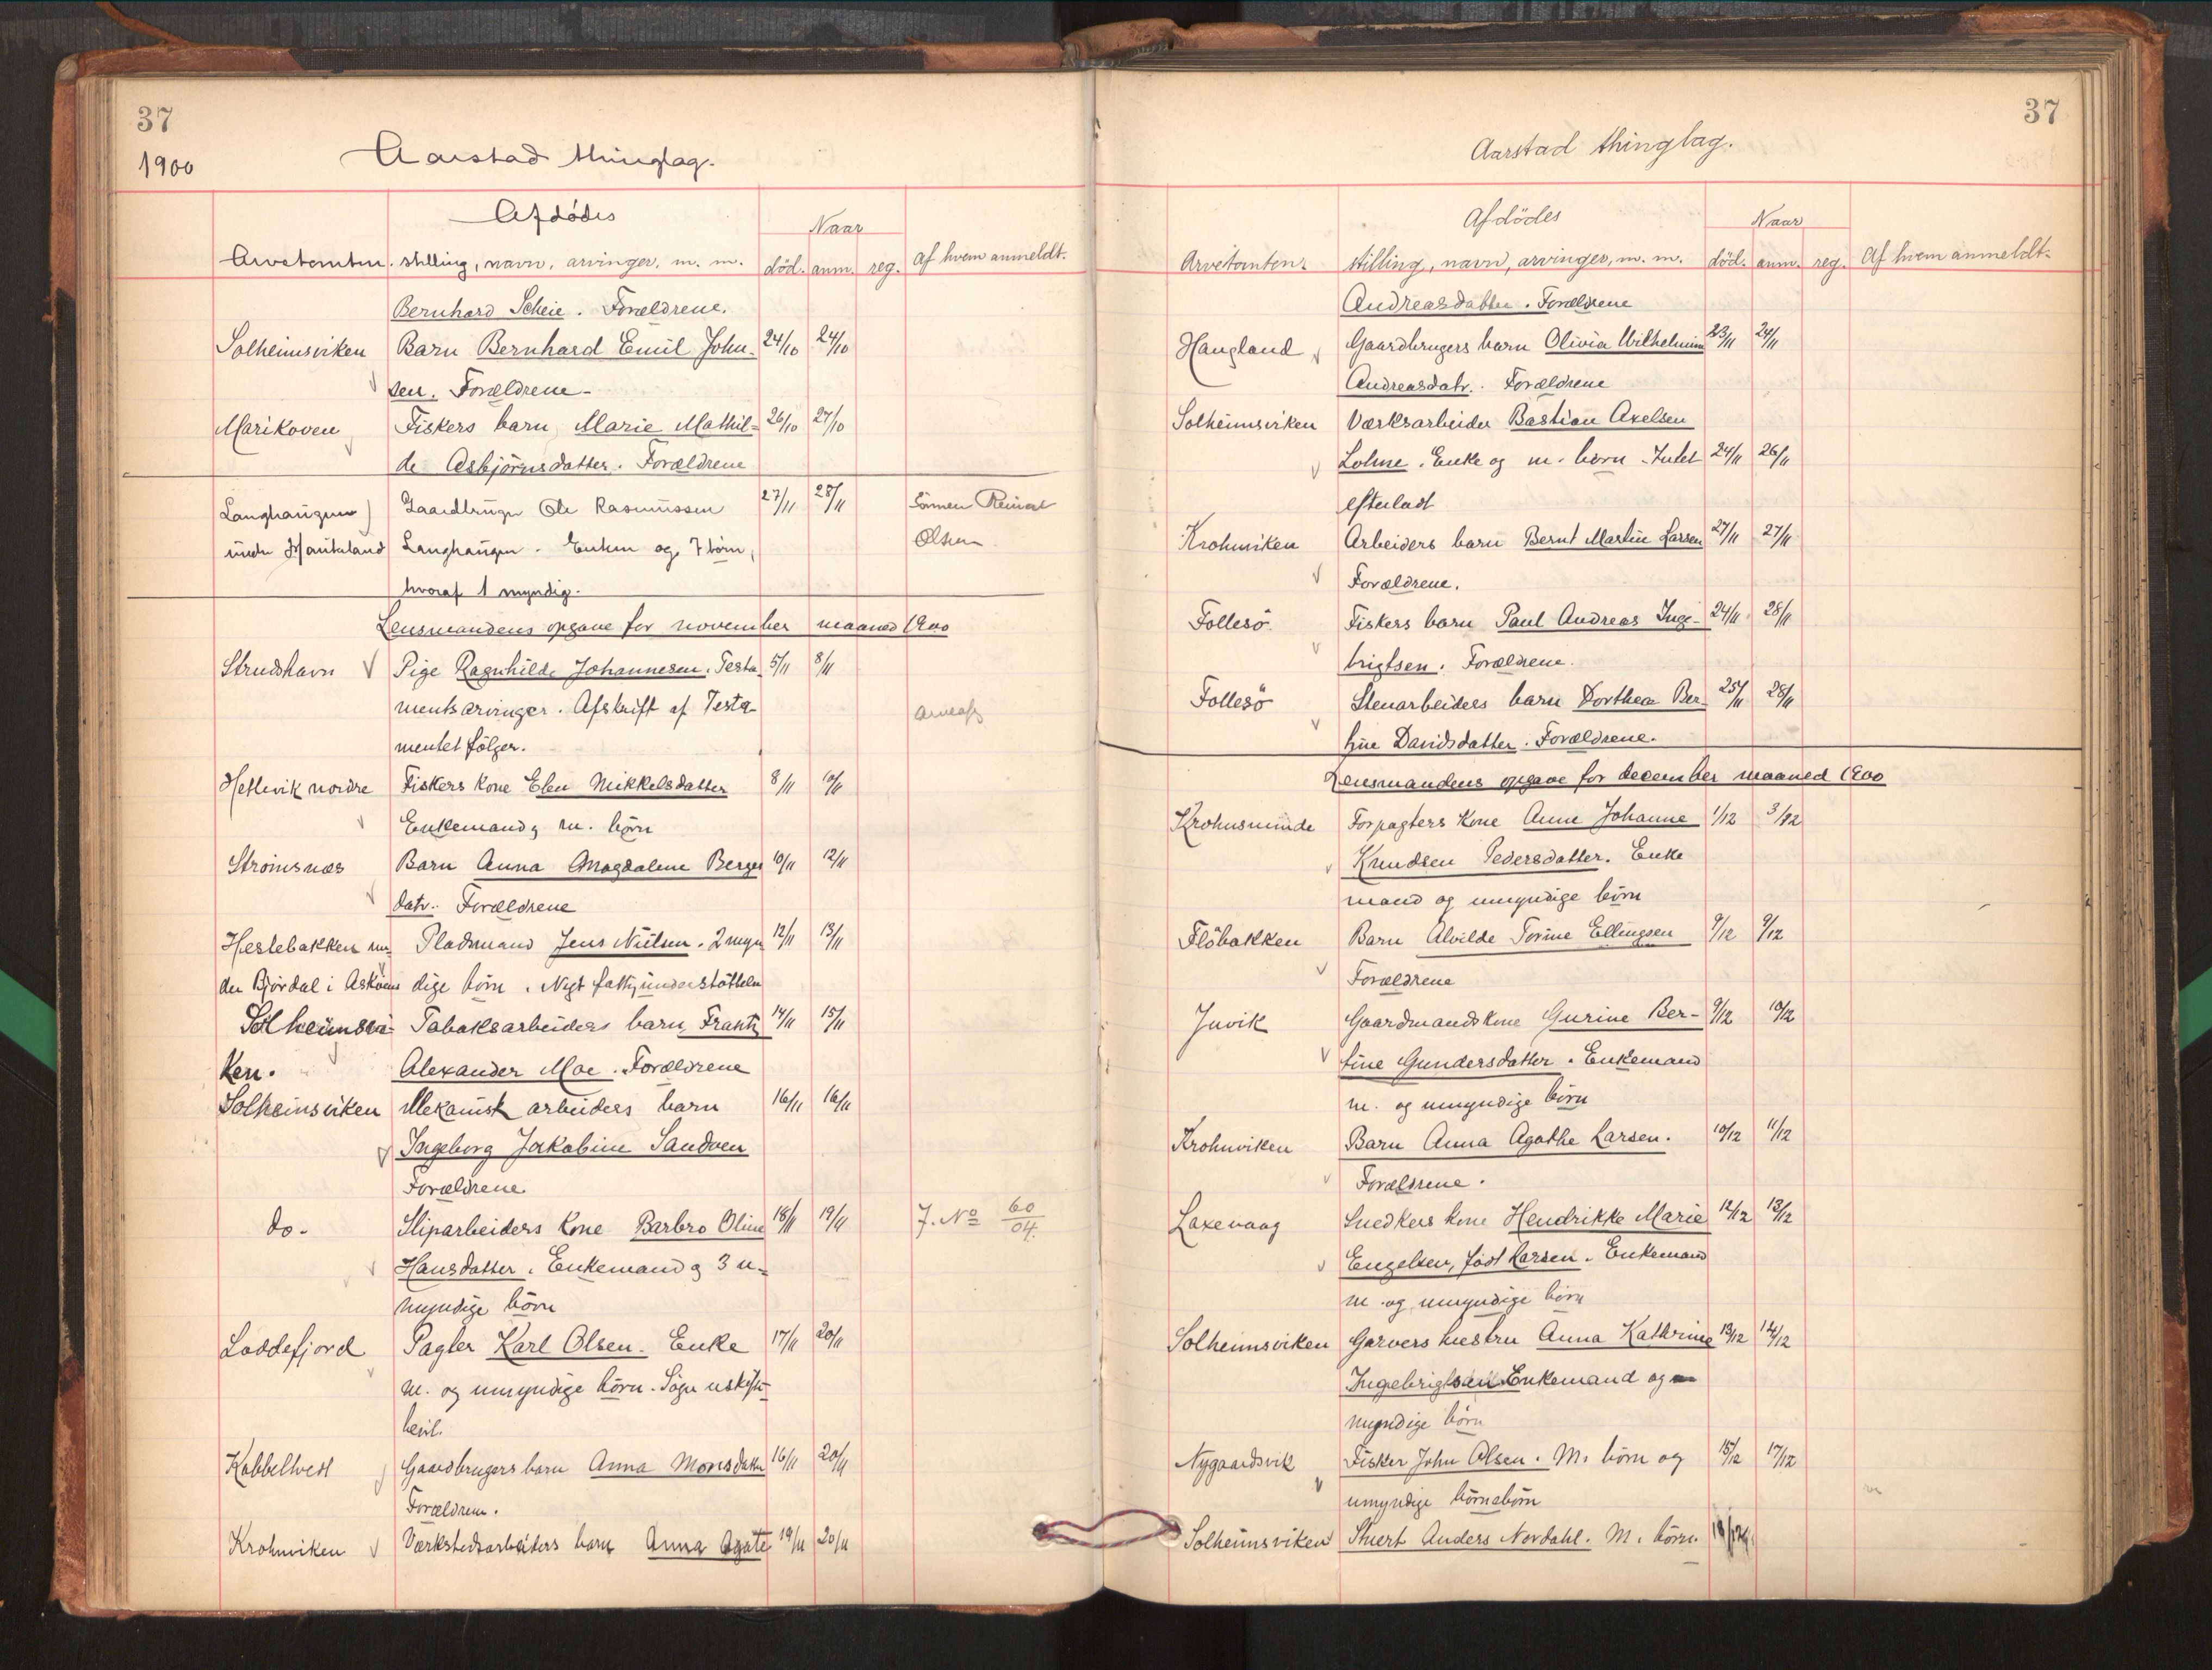 37
1900
Aarstad thinglag.
Afdödes
Naar
Arvetomten. stilling, navn, arvinger, m. m. död. anm. reg. Af hvem anmeldt.
Bernhard Scheie. Forældrene.
Solheimsviken Barn Bernhard Emil John- 24/10 24/10
sen. Forældrene-
Marikoven Fiskers barn Marie Mathil- 26/10 27/10
de Asbjörnsdatter. Forældrene
Langhaugen Gaardbruger Ole Rasmussen 27/11 28/11 Sönnen Reinert
under Haukeland Langhaugen. Enken og 7 börn, Olsen
hvoraf 1 myndig.
Lensmandens opgave for november maaned 1900
Strudshavn Pige Ragnhilde Johannesen. Testa- 5/11 8/11
mentsarvinger. Afskrift af Testa-
mentet fölger.
Hetlevik nordre Fiskers kone Elen Mikkelsdatter 8/11 10/11
Enkemand og m. börn
Strömsnæs Barn Anna Magdalene Berges 10/11 12/11
datr. Forældrene
Hestebakken un- Pladsmand Jens Nilsen. 2 myn 12/11 13/11
der Björdal i Asköens dige börn. Nyt fattigunderstöttelse
Solheimsvi- Tabaksarbeiders barn Frantz 14/11 15/11
ken. Alexander Moe. Forældrene
Solheimsviken Mekanisk arbeiders barn 16/11 16/11
Ingeborg Jakobine Sandven
Forældrene
do- Sliparbeiders kone Barbro Oline 18/11 19/11 J. No 60/04.
Hansdatter. Enkemand og 3 u-
myndige börn
Loddefjord Pagter Karl Olsen. Enke 17/11 20/11
m. og umyndige börn. Söger uskifte-
bevil.
Kobbeltvedt Gaardbrugers barn Anna Monsdatter 16/11 20/11
Forældrene.
Krohnviken Værkstedsarbeiders barn Anna Agate 19/11 20/11
37
Aarstad thinglag.
Afdödes
Naar
Arvetomten. stilling, navn, arvinger, m. m. död. anm. reg. Af hvem anmeldt.
Andreasdatter. Forældrene
Haugland Gaardbrugers barn Olivia Wilhelmine 23/11 24/11
Andreasdatr. Forældrene
Solheimsviken Værksarbeider Bastian Axelsen
Lohne. Enke og m. börn. Intet 24/11 26/11
efterladt
Krohnviken Arbeiders barn Bernt Martin Larsen 27/11 27/11
Forældrene.
Follesö Fiskers barn Paul Andreas Inge- 24/11 28/11
brigtsen. Forældrene.
Follesö Stenarbeiders barn Dorthea Ber- 25/11 28/11
tine Davidsdatter. Forældrene.
Lensmandens opgave for december maaned 1900
Krohnsminde Forpagters kone Anne Johanne 1/12 3/12
Knudsen Pedersdatter. Enke
mand og umyndige börn
Flöbakken Barn Alvilde Torine Ellingsen 9/12 9/12
Forældrene
Juvik Gaardmandskone Gurine Ber- 9/12 10/12
tine Gundersdatter. Enkemand
m. og umyndige börn
Krohnviken Barn Anna Agathe Larsen. 10/12 11/12
Forældrene.
Laxevaag Snedkers kone Hendrikke Marie 12/12 13/12
Engelsen, född Larsen. Enkemand
m. og umyndige börn
Solheimsviken Garvers hustru Anna Kathrine 13/12 14/12
Ingebrigtsen Enkemand og
myndige börn
Nygaardsvik Fisker John Olsen. M. börn og 15/12 17/12
umyndige börnebörn
Solheimsviken Stuert Anders Nordahl. M. börn.